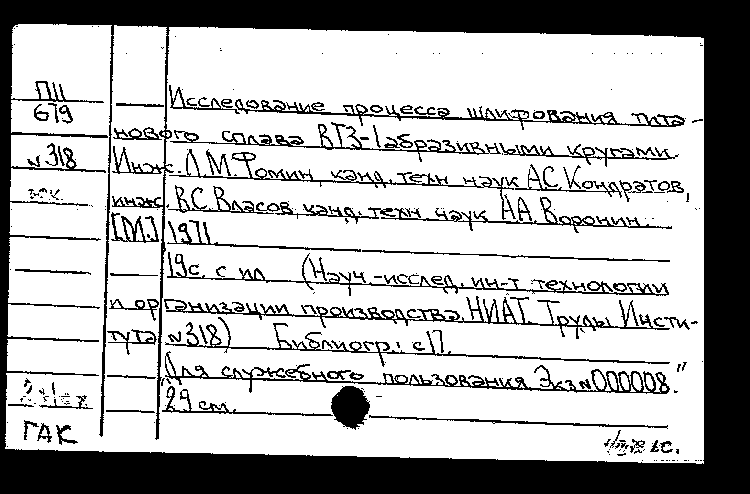 П11
679
Исследование процесса шлифования тита-
нового сплава ВТ3-1 абразивными кругами.
№318
Инж. Л.М.Фомин, канд. техн. наук А.С.Кондратов,
инж. В.С.Власов, канд. техн. наук А.А.Воронин.
[М.] 1971.
19с. с ил. (Науч.-исслед. ин-т технологии
и организации производства НИАТ. Труды Инсти-
тута №318) Библиогр.: с 17.
"Для служебного пользования Экз №000008."
29 см.
ГАК